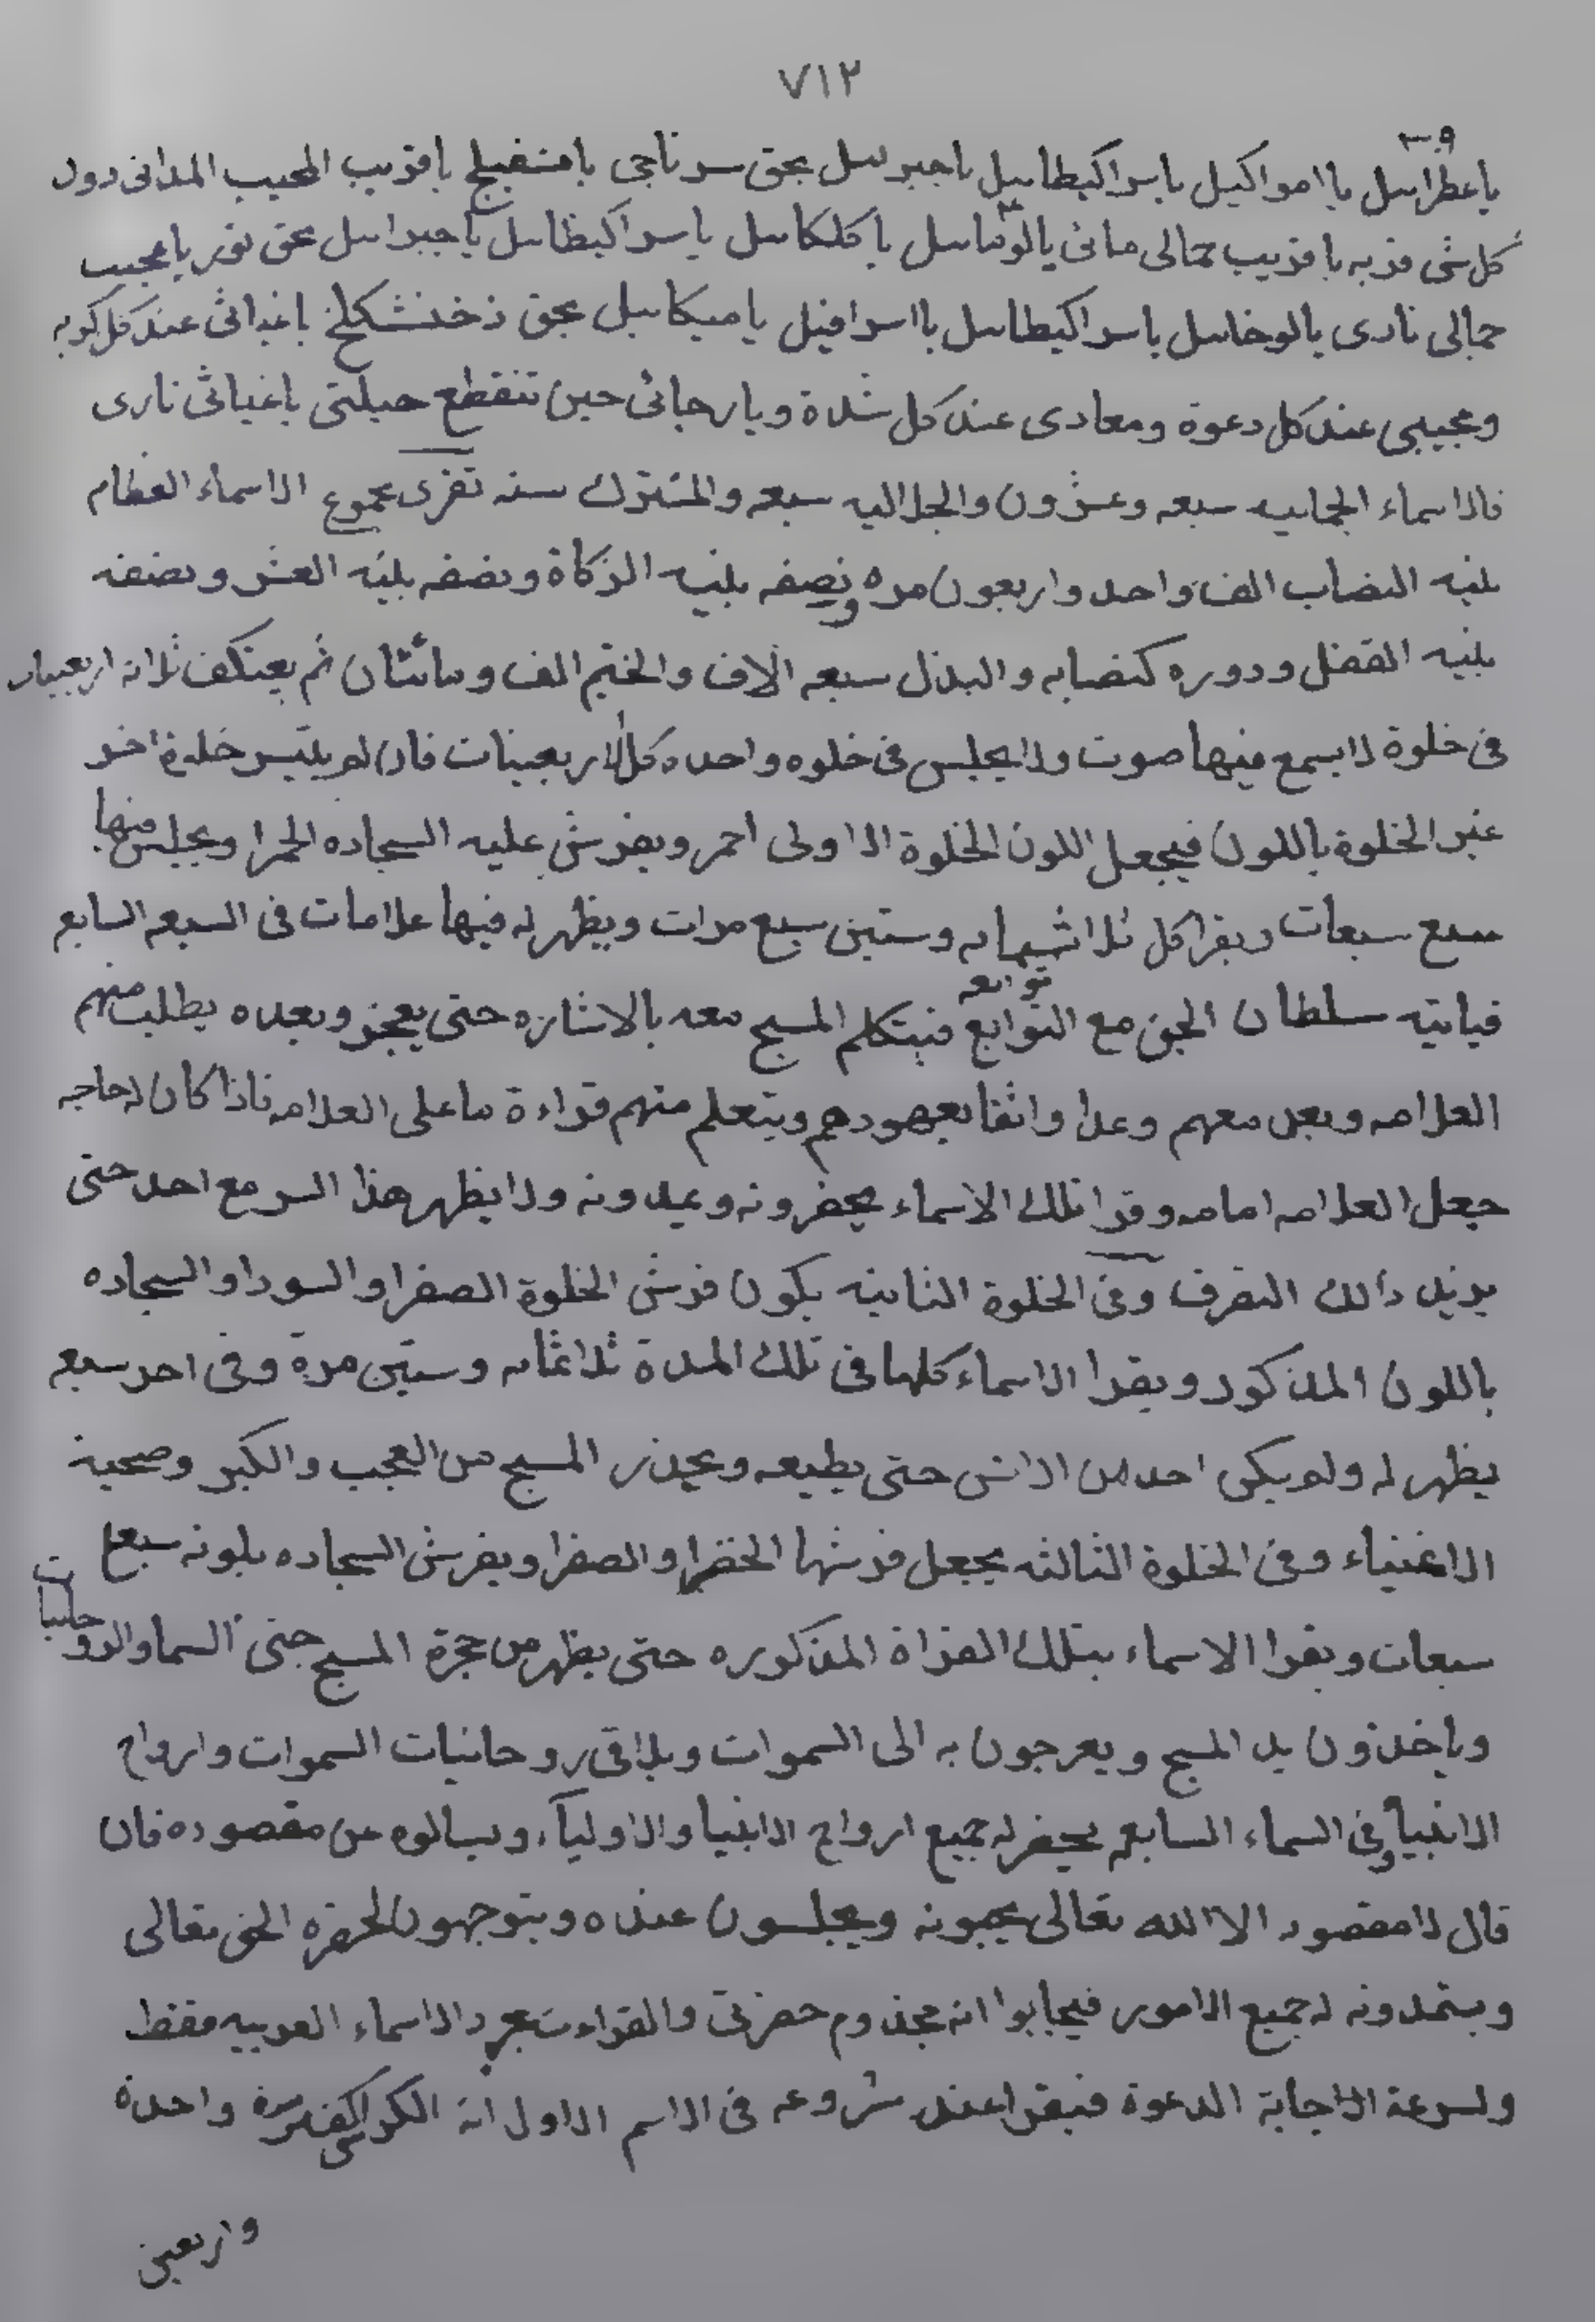 ٧١٢
٣٩
ياعطراسل يا امواكيل ياسراكيطاييل ياجبرسل بحق سر ناجى يا يا قريب المجيب المدانى دون
كل شى قربه يا قريب جمالى مائى يالوماسل يا كلكاسل ياسراكيظاسل ياجبراسل بحق يا عجيب
جمالى نارى يالوخاسل ياسراكيطاسل يا اسرافيل يا ميكاسل بحق ذخنشكلخ ياغياثى عند كل كربه
ومجيبى عند كل دعوة ومعادى عند كل شدة ويا رجائى حين تنقطع حيلتى ياغياثى نارى
فالاسماء الجماليه سبعه وعشرون والجلاليه سبعه والمشترك سته تقرى مجموع الاسماء العظام
بنيه النصاب الف واحد واربعون مره ونصفه بنيه الزكاة ونصفه بنيه العشر ونصفه
بنيه القفل ودوره كنصابه والبذل سبعه الاف والختم الف ومائتان ثم يعتكف ثلاثه اربعينات
فى خلوة لا يسمع فيها صوت ولا يجلس فى خلوه واحده كل الاربعينات فان لم يتيسر خلوة اخر
غير الخلوة باللون فيجعل اللون الخلوة الاولى احمر ويفرش عليه السجاده الحمرا ويجلس فيها
سبع سبعات ويقرا كل ثلاثمايه وستين سبع مرات ويظهر له فيها علامات فى السبعه السابع
توابعه
فياتيه سلطان الجن مع التوابع فيتكلم المسبح معه بالاشاره حتى يعجز وبعده يطلب منهم
العلامه ويعل معهم وعدا واثقا بعهودهم ويتعلم منهم قراءة ما على العلامه فاذا كان له حاجه
جعل العلامه امامه وقرا تلك الاسماء يحضرونه ويمدونه ولا يظهر هذا السر مع احد حتى
يزيل ذالك التصرف وفى الخلوة الثانيه يكون فرش الخلوة الصفرا والسودا والسجاده
باللون المذكور ويقرا الاسماء كلها فى تلك المدة ثلاثمايه وستين مرة وفى اخر سبعه
يظهر له ولم يبكى احد من الانس حتى يطيعه ويحذر المسبح من العجب والكبر وصحبة
الاغنياء وفى الخلوة الثالثه يجعل فرشها الخضرا والصفرا ويفرش السجاده بلونه سبع
سبعات ويقرا الاسماء بتلك القراة المذكوره حتى يظهر من حجرة المسبح جنى السما والروحانيات
وياخذون يد المسبح ويعرجون به الى السموات ويلاقى روحانيات السموات وارواح
الانبيا وفى السماء السابعه يحضر له جميع ارواح الانبيا والاوليآء ويسالوه عن مقصوده فان
قال لا مقصود الا الله تعالى يحبونه ويجلسون عنده ويتوجهون لحضرة الحق تعالى
ويستمدونه له جميع الامور فيجابوا انه مجذوم حضرتى والقراءت بمجرد الاسماء العربيه فقط
ولسرعة الاجابة الدعوة فيقرا عند شروعه فى الاسم الاول اية الكرسى مرة واحدة
واربعين